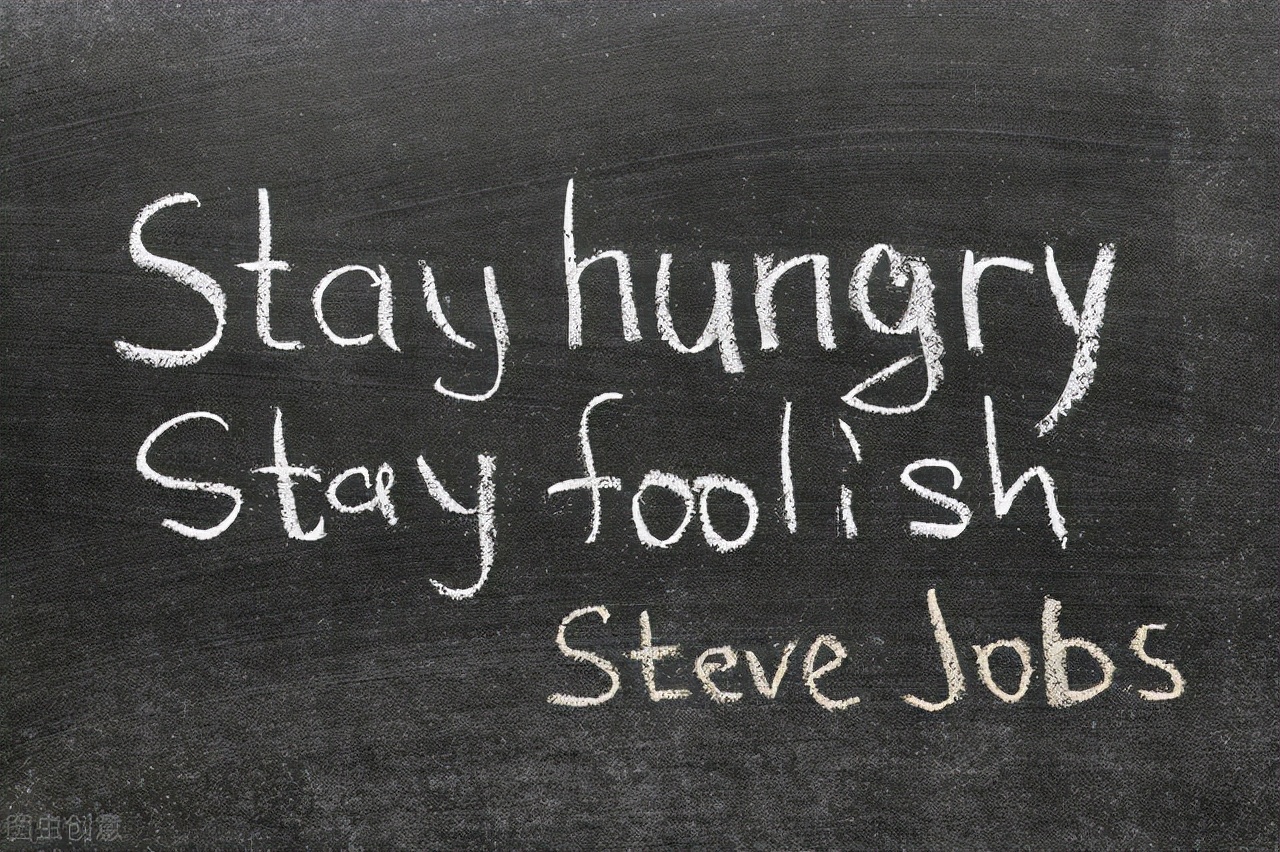 Stay hungry
Stay foolish
Steve Jobs
图虫创意